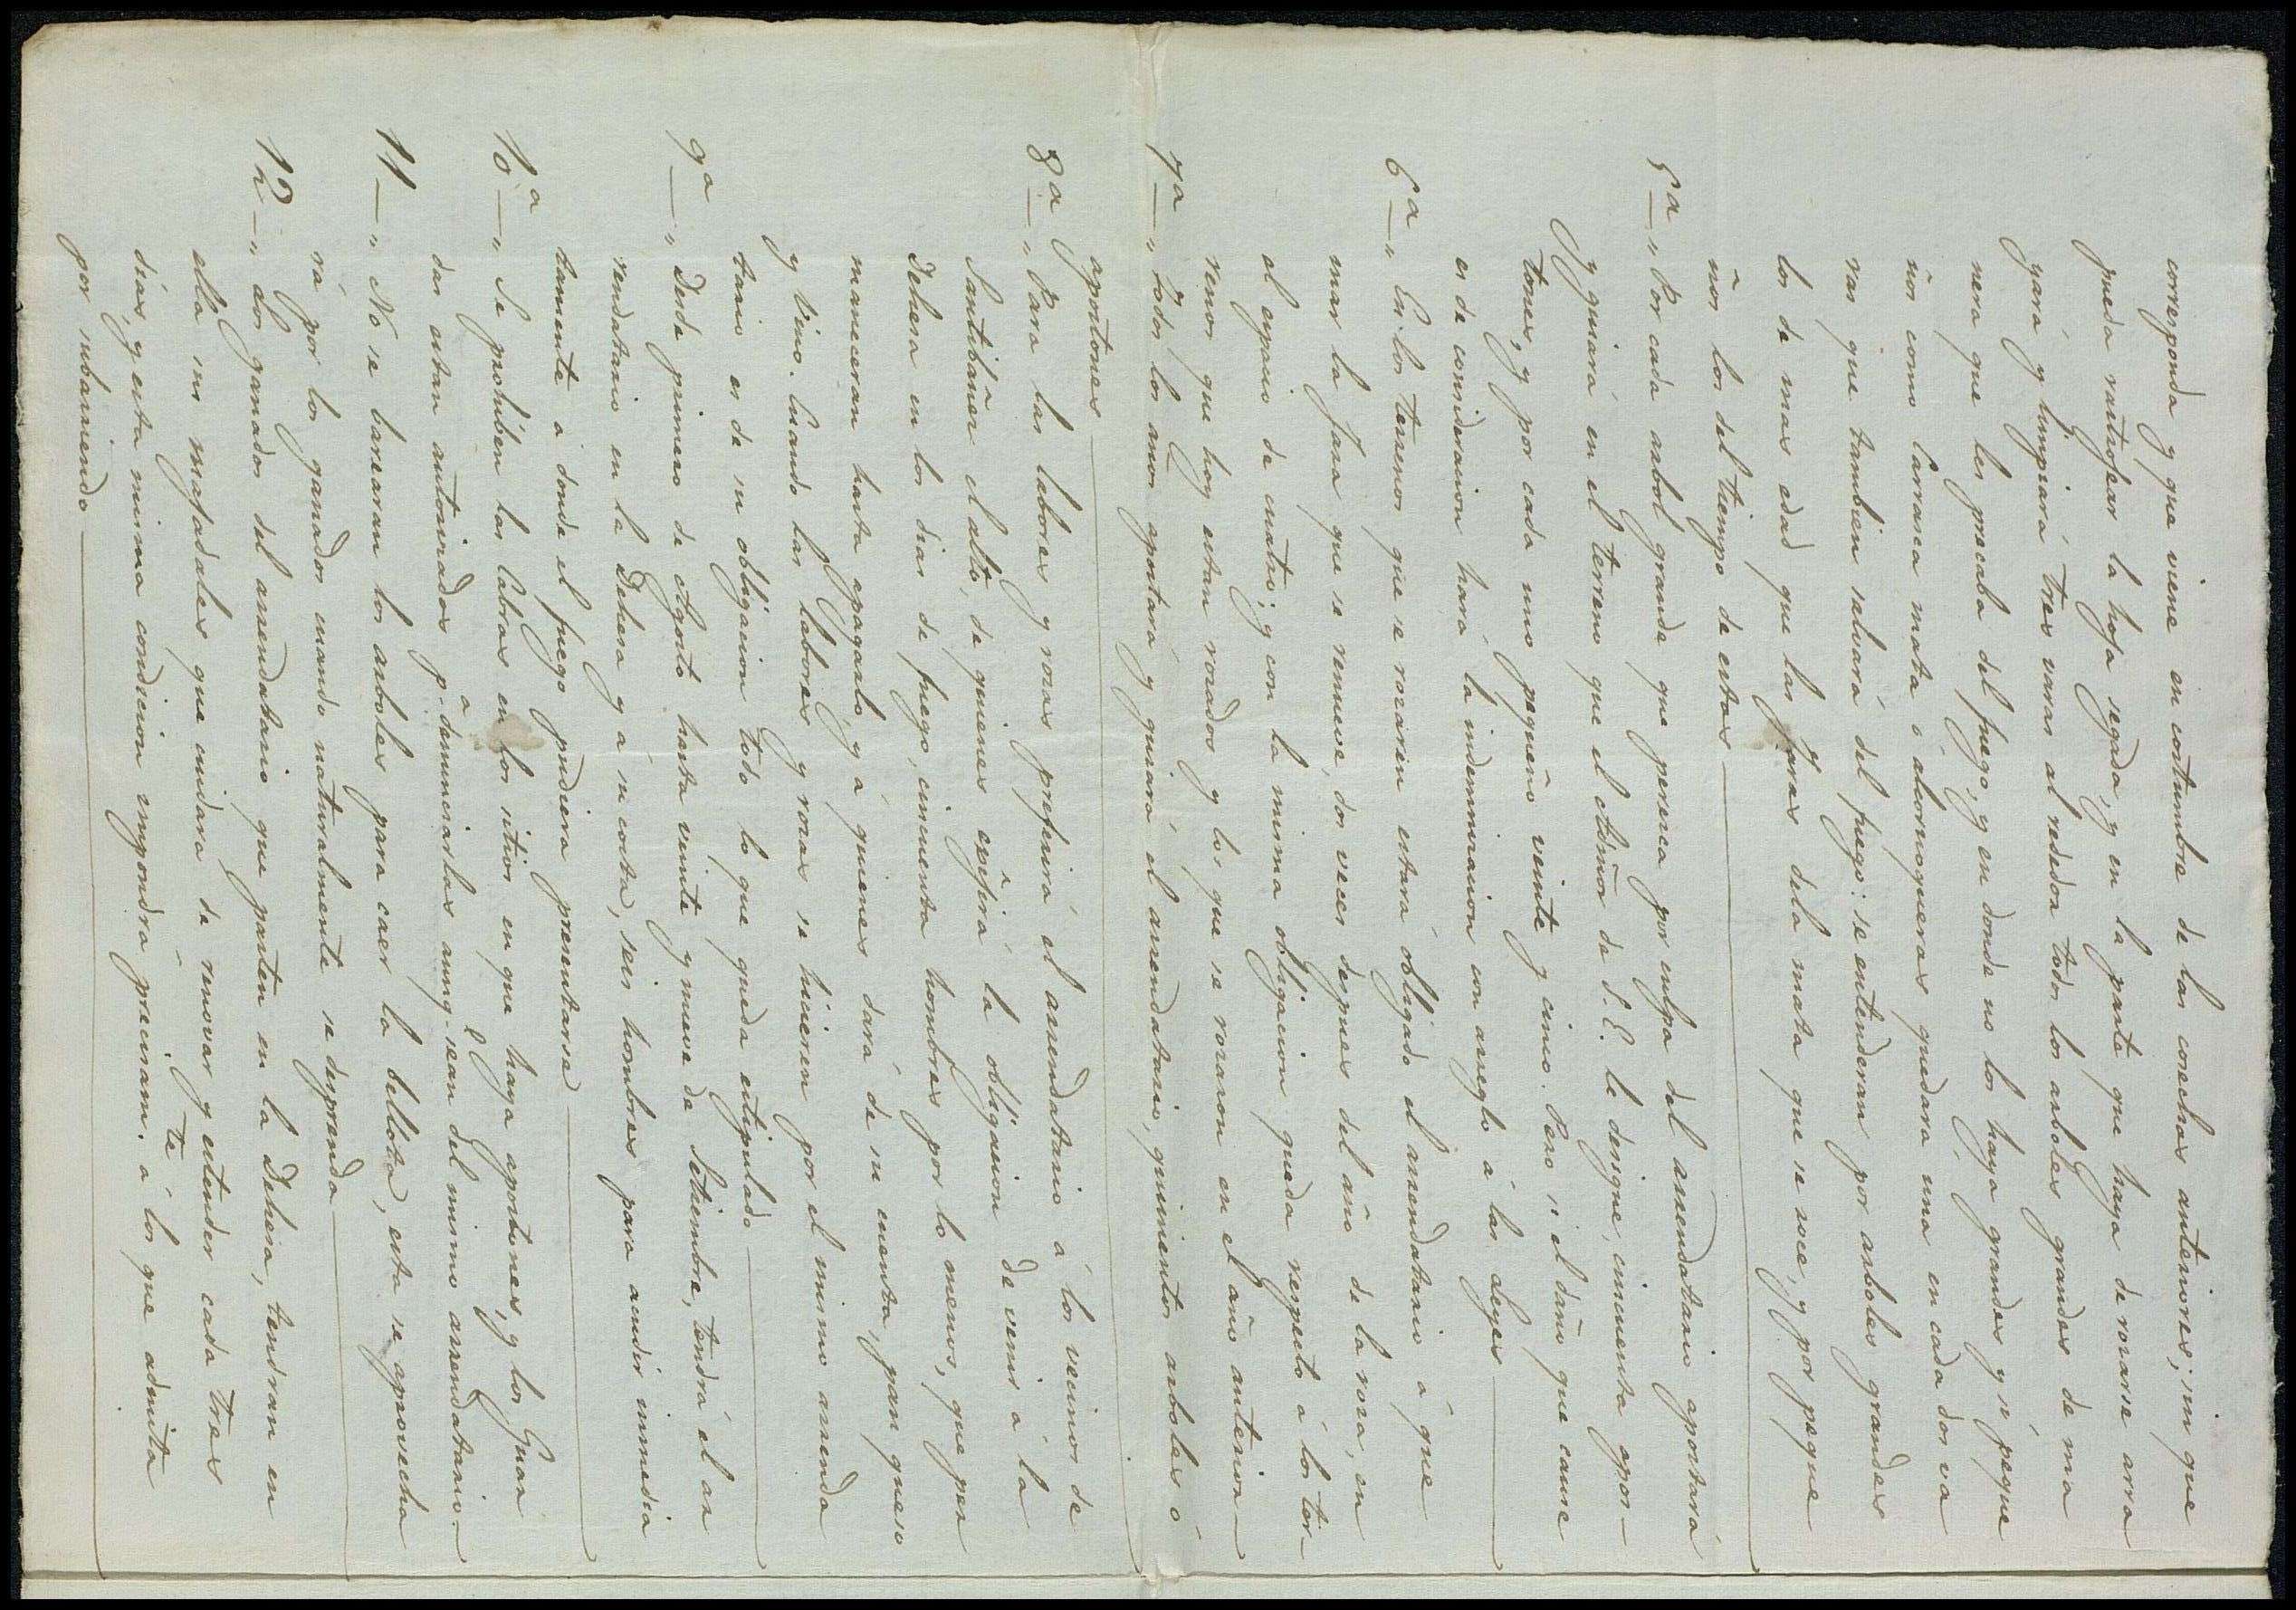 corresponda y que viene en costumbre de las cosechas anteriores; sin que
pueda rastrojear la hoja segada, y en la parte que haya de rozarse arra
gará y limpiará tres varas al rededor todos los arboles grandes de ma
nera que les precaba del fuego, y en donde no los haya grandes y si peque
ños como carrasca mata ó alornoqueras quedara una en cada dos va
ras que tambien salvará del fuego: se entenderan por arboles grandes
los de mas edad que las jaras dela mata que se roce, y por peque
ños los del tiempo de estas
5ª — " Por cada arbol grande que peresca por culpa del arrendatario apostará
y guiará en el terreno que el Señor de S. E. le designe, cincuenta apos-
tones, y por cada uno pequeño veinte y cinco. Pero si el daño que cause
es de consideracion hará la indemnizacion con arreglo á las leyes
6ª — " En los terrenos que se rozaren estará obligado el arrendatario á que
mar la Jara que se renueve, dos veces despues del año de la roza, en
el espacio de cuatro; y con la misma obligacion queda respecto á los ter-
renos que hoy estan rozados y los que se rozaron en el año anterior
7ª — " Todos los años apostará y guiará el arrendatario, quinientos arboles ó
apostones
8ª — " Para las labores y rozas preferirá el arrendatario á los vecinos de
Santibañez el alto, de quienes exijirá la obligacion de venir á la
Dehesa en los dias de fuego, cincuenta hombres por lo menos, que per
maneceran hasta apagarlo, y á quienes dará de su cuenta, pan queso
y vino. Cuando las labores y rozas se hicieren por el mismo arrenda
tario es de su obligacion todo lo que queda estipulado
9ª — " Desde primero de Agosto hasta veinte y nueve de Setiembre, tendrá el ar
rendatario en la Dehesa y á su costa, seis hombres para acudir inmedia
tamente á donde el fuego pudiera presentarse
10ª — " Se prohiben las Cabras en los sitios en que haya apostones, y los Guar
das estan autorizados pª denunciarlas aunqe sean del mismo arrendatario
11 — " No se barearan los arboles para caer la bellota, esta se aprovecha
rá por los ganados cuando naturalmente se desprenda
12 — " Los ganados del arrendatario que pasten en la Dehesa, tendran en
ella sus majadales que cuidara de renovar y estender cada tres
dias, y esta misma condicion impondrá precisamte á los que admita
por subarriendo